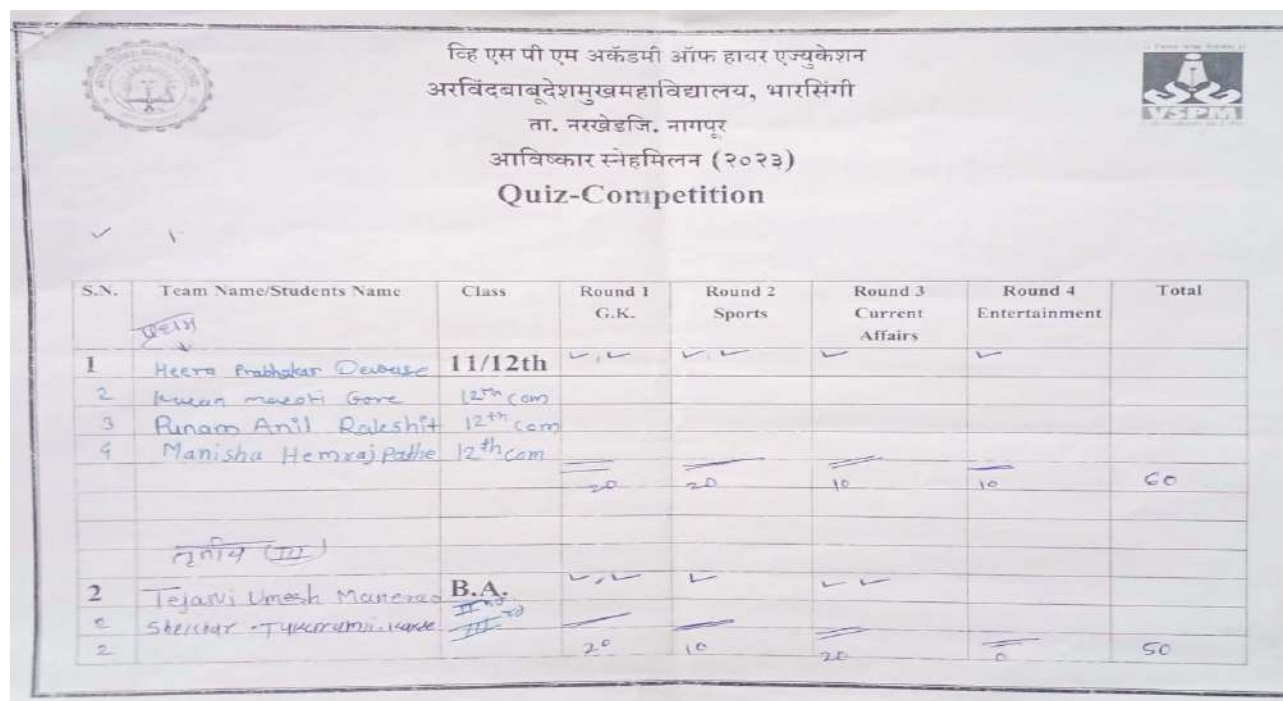 व्हि एस पी एम अकॅडमी ऑफ हायर एज्युकेशन
अरविंदबाबूदेशमुखमहाविद्यालय, भारसिंगी
ता. नरखेडजि. नागपूर
आविष्कार स्नेहमिलन (२०२३)
VSPM
Quiz-Competition
S.N. Team Name/Students Name Class Round 1 G.K. Round 2 Sports Round 3 Current Affairs Round 4 Entertainment Total
प्रथम
1 Heera Prabhakar 11/12th
2 Gore 12th com
3 Punam Anil Rakshit 12th com
4 Manisha Hemraj Pathe 12th com
20 20 10 10 60
तृतीय (III)
2 Tejasvi Umesh B.A.
2 III
2 20 10 20 0 50